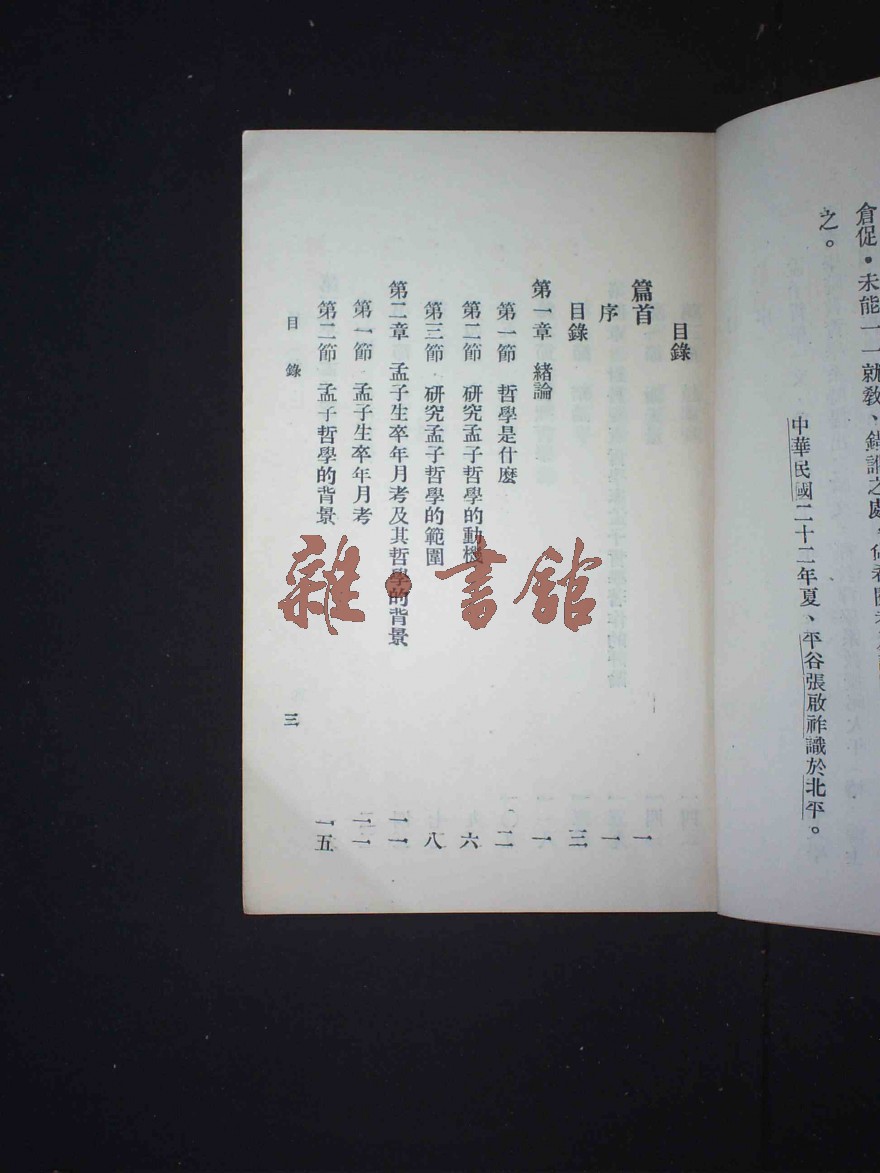 倉促·未能一一就敎、錯謬之處、
之。
中華民國二十二年夏、平谷張啟祚識於北平。
目錄
篇首 一
序 一
目錄 三
第一章 緒論 一
第一節 哲學是什麼 二
第二節 研究孟子哲學的動機 六
第三節 研究孟子哲學的範圍 八
第二章 孟子生卒年月考及其哲學的背景 一一
第一節 孟子生卒年月考 一一
第二節 孟子哲學的背景 一五
目錄
三
雜·書館